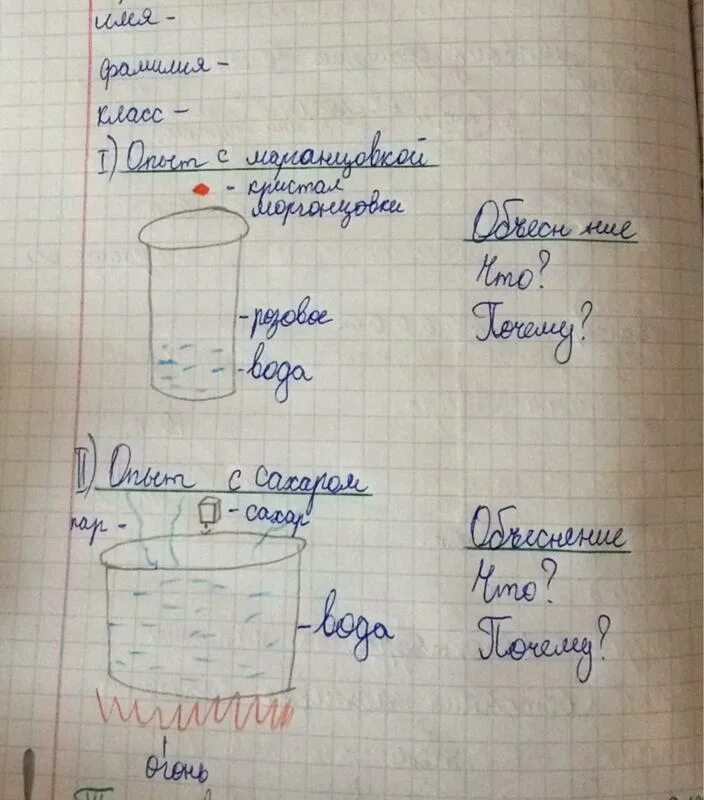 имя -
фамилия -
класс -
I) Опыт с марганцовкой
- кристал
морганцовки
Объесн ние
Что?
- розовое
Почему?
- вода
II) Опыт с сахаром
- сахар
пар -
Объеснение
Что?
- вода
Почему?
огонь
III